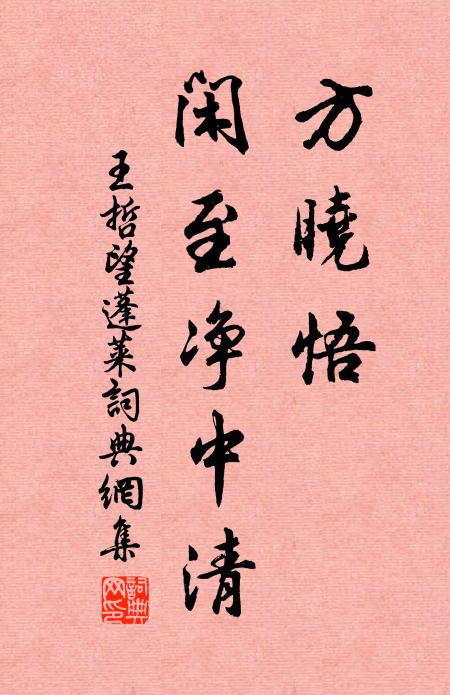 方曉悟
閑至净中清
王哲望蓬萊詞典網集
詞典網印